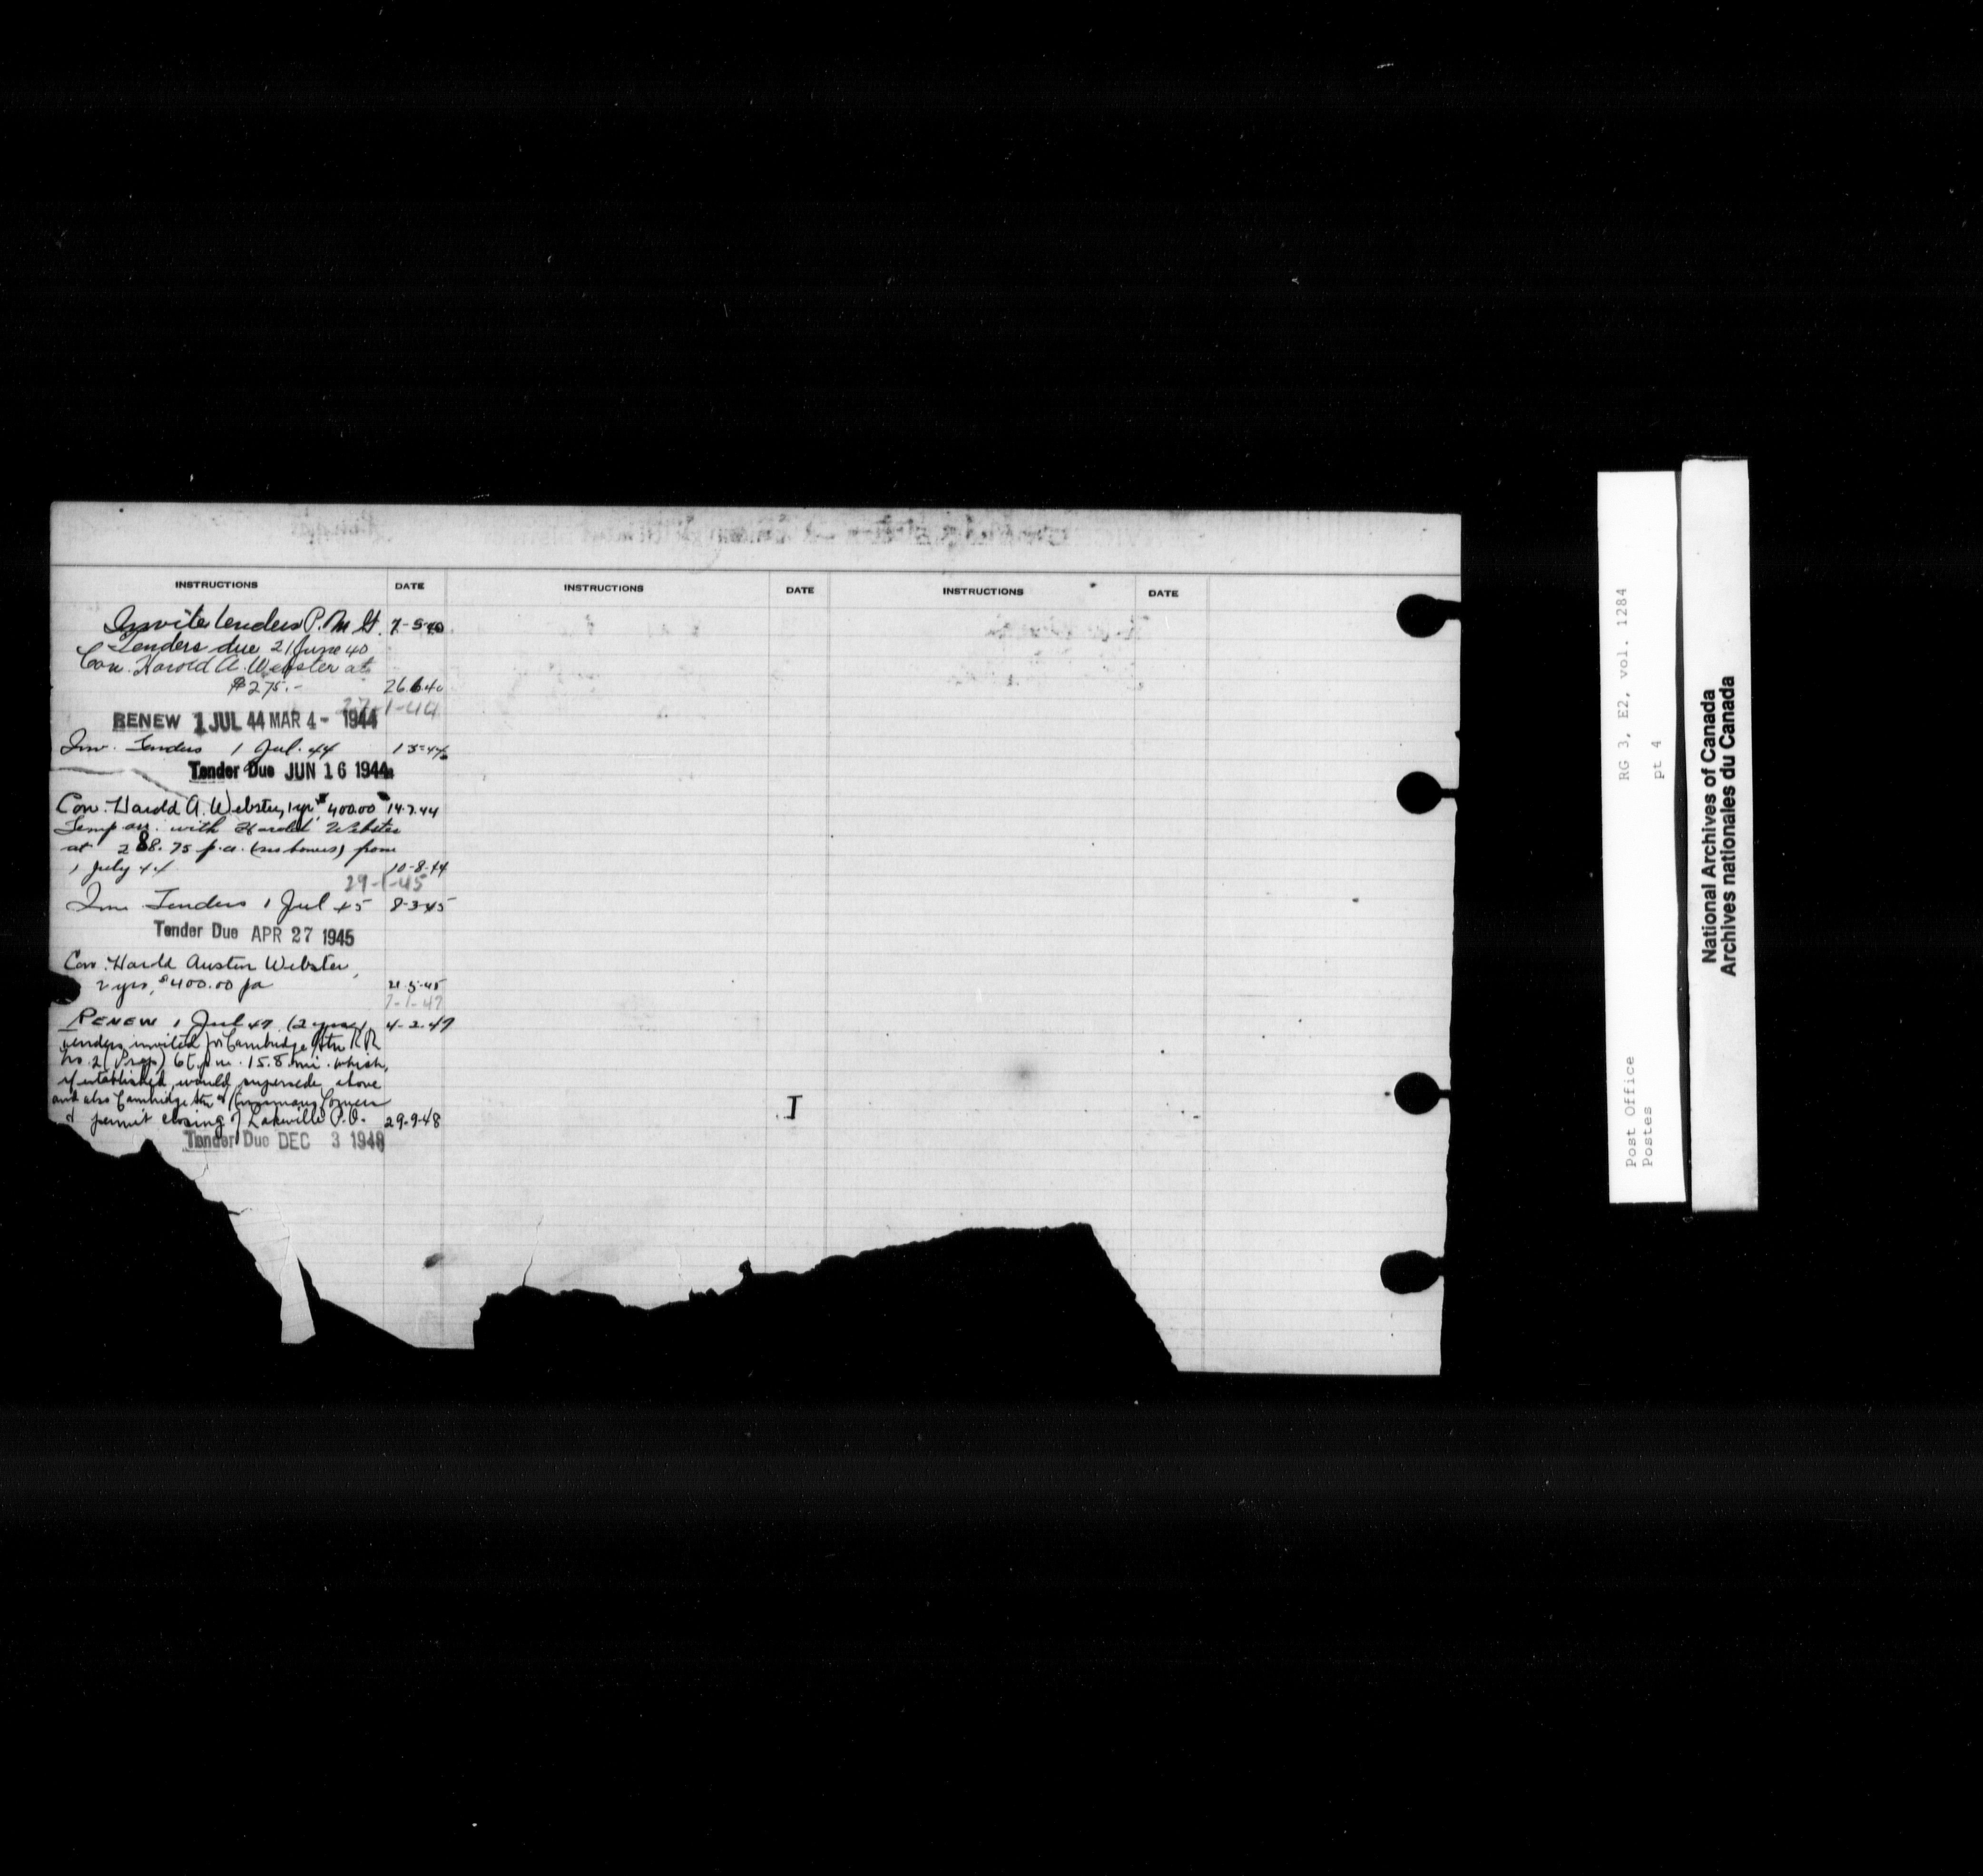 INSTRUCTIONS DATE INSTRUCTIONS DATE INSTRUCTIONS DATE
Invite tenders P.M.G. 7-5-40
Tenders due 21 June 40
Con. Harold A. Webster at
$275.- 26.6.40
27-1-44
RENEW 1 JUL 44 MAR 4- 1944
Inv. Tenders 1 Jul. 44 1-5-44
Tender Due JUN 16 1944
Con. Harold A. Webster, 1 yr, $400.00 14.7.44
Temp arr. with Harold Webster
at 288.75 p.a. (no bonus) from
1 July 44 10-8-44
29-1-45
Inv Tenders 1 Jul 45 8-3-45
Tender Due APR 27 1945
Con. Harold Austin Webster,
2 yrs, $400.00 pa 21-5-45
7-1-47
RENEW 1 Jul 47 (2 years) 4-2-47
Tenders invited for Cambridge Stn RR
No. 2 (Prop) 6 t.p.w. 15.8 mi. which,
if established, would supersede above
and also Cambridge Stn & Corners
& permit closing of Lakeville P.O. 29-9-48
Tender Due DEC 3 1948
I
RG 3, E2, vol. 1284
pt 4
Post Office
Postes
National Archives of Canada
Archives nationales du Canada